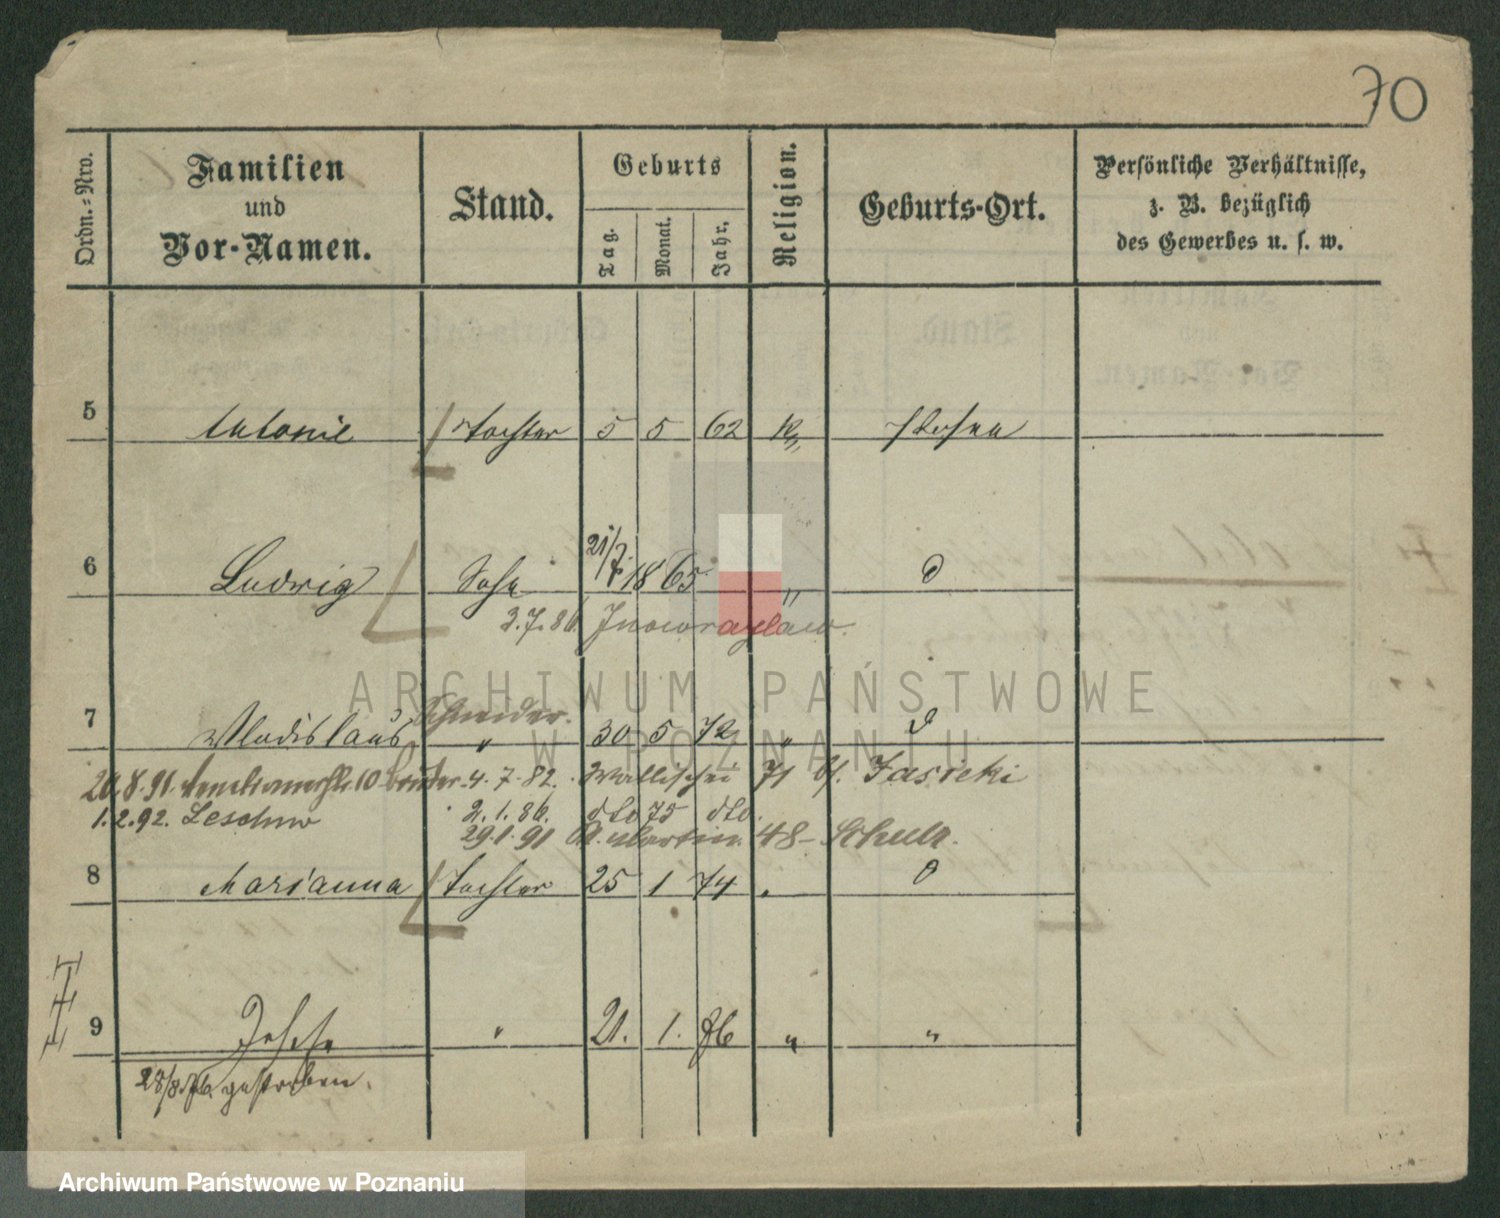 70
Ordn.-Nro.
Familien
und
Vor-Namen.
Stand.
Geburts
Tag.
Monat.
Jahr.
Religion.
Geburts-Ort.
Persönliche Verhältnisse,
z. B. bezüglich
des Gewerbes u. s. w.
5 Antonie Tochter 5 5 62 K
6 Ludwig Sohn 21/7. 1865 "
3.7.86 Inowrazlaw.
ARCHIWUM PAŃSTWOWE
W POZNANIU
Schneider.
7 Wladislaus " 30 5 72 "
20.8.91. 10 4.7.82. Wallischei 71 Jasicki
1.2.92. Leschno 2.1.86. dto 75 dto.
29.1.91 St. Martin. 48 - Schulz.
8 Marianna Tochter 25 1 74
9 Josefa " 21. 1. 76 " "
28/8.76 gestorben.
Archiwum Państwowe w Poznaniu